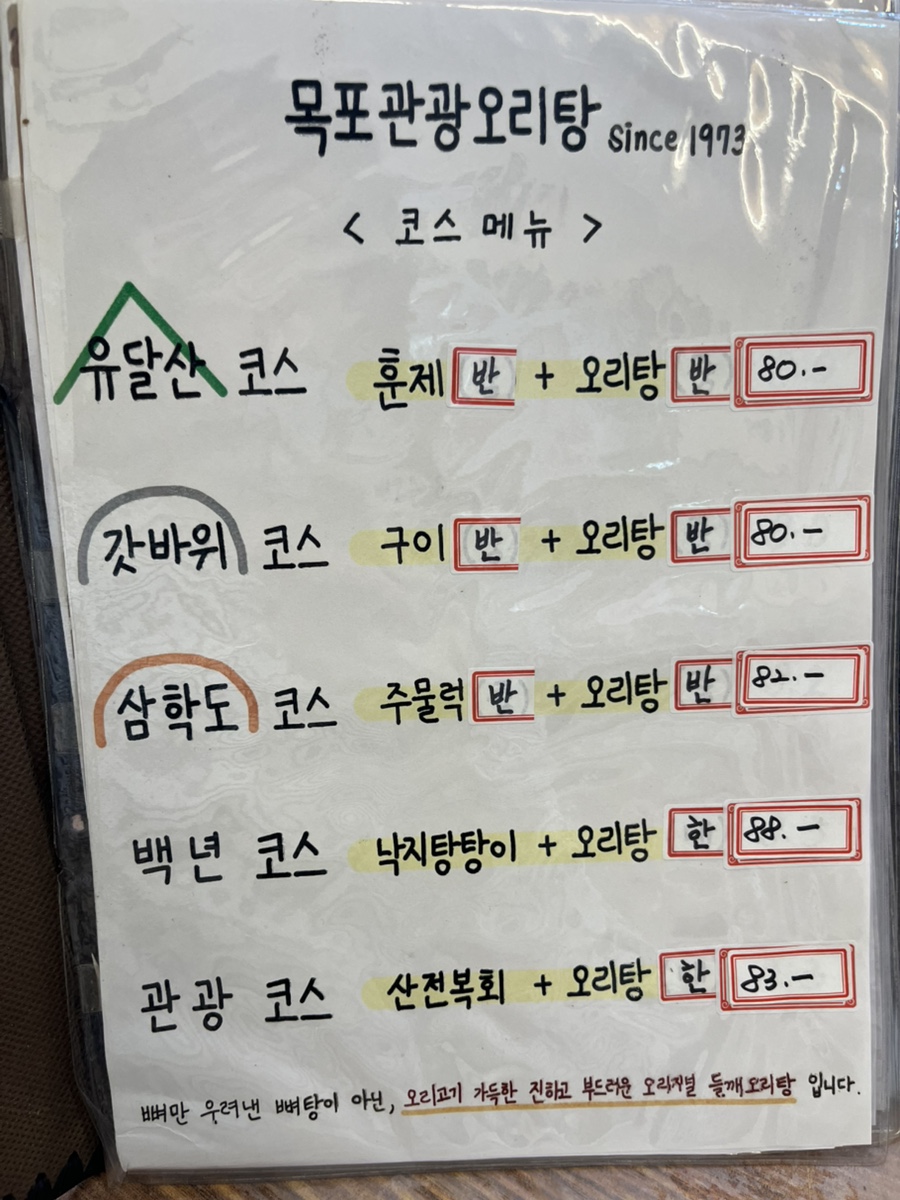 목포관광오리탕 Since 1973
< 코스 메뉴 >
유달산 코스 훈제 반 + 오리탕 반 80.-
갓바위 코스 구이 반 + 오리탕 반 80.-
삼학도 코스 주물럭 반 + 오리탕 반 82.-
백년 코스 낙지탕탕이 + 오리탕 한 88.-
관광 코스 산전복회 + 오리탕 한 83.-
뼈만 우려낸 뼈탕이 아닌, 오리고기 가득한 진하고 부드러운 오리지널 들깨오리탕 입니다.